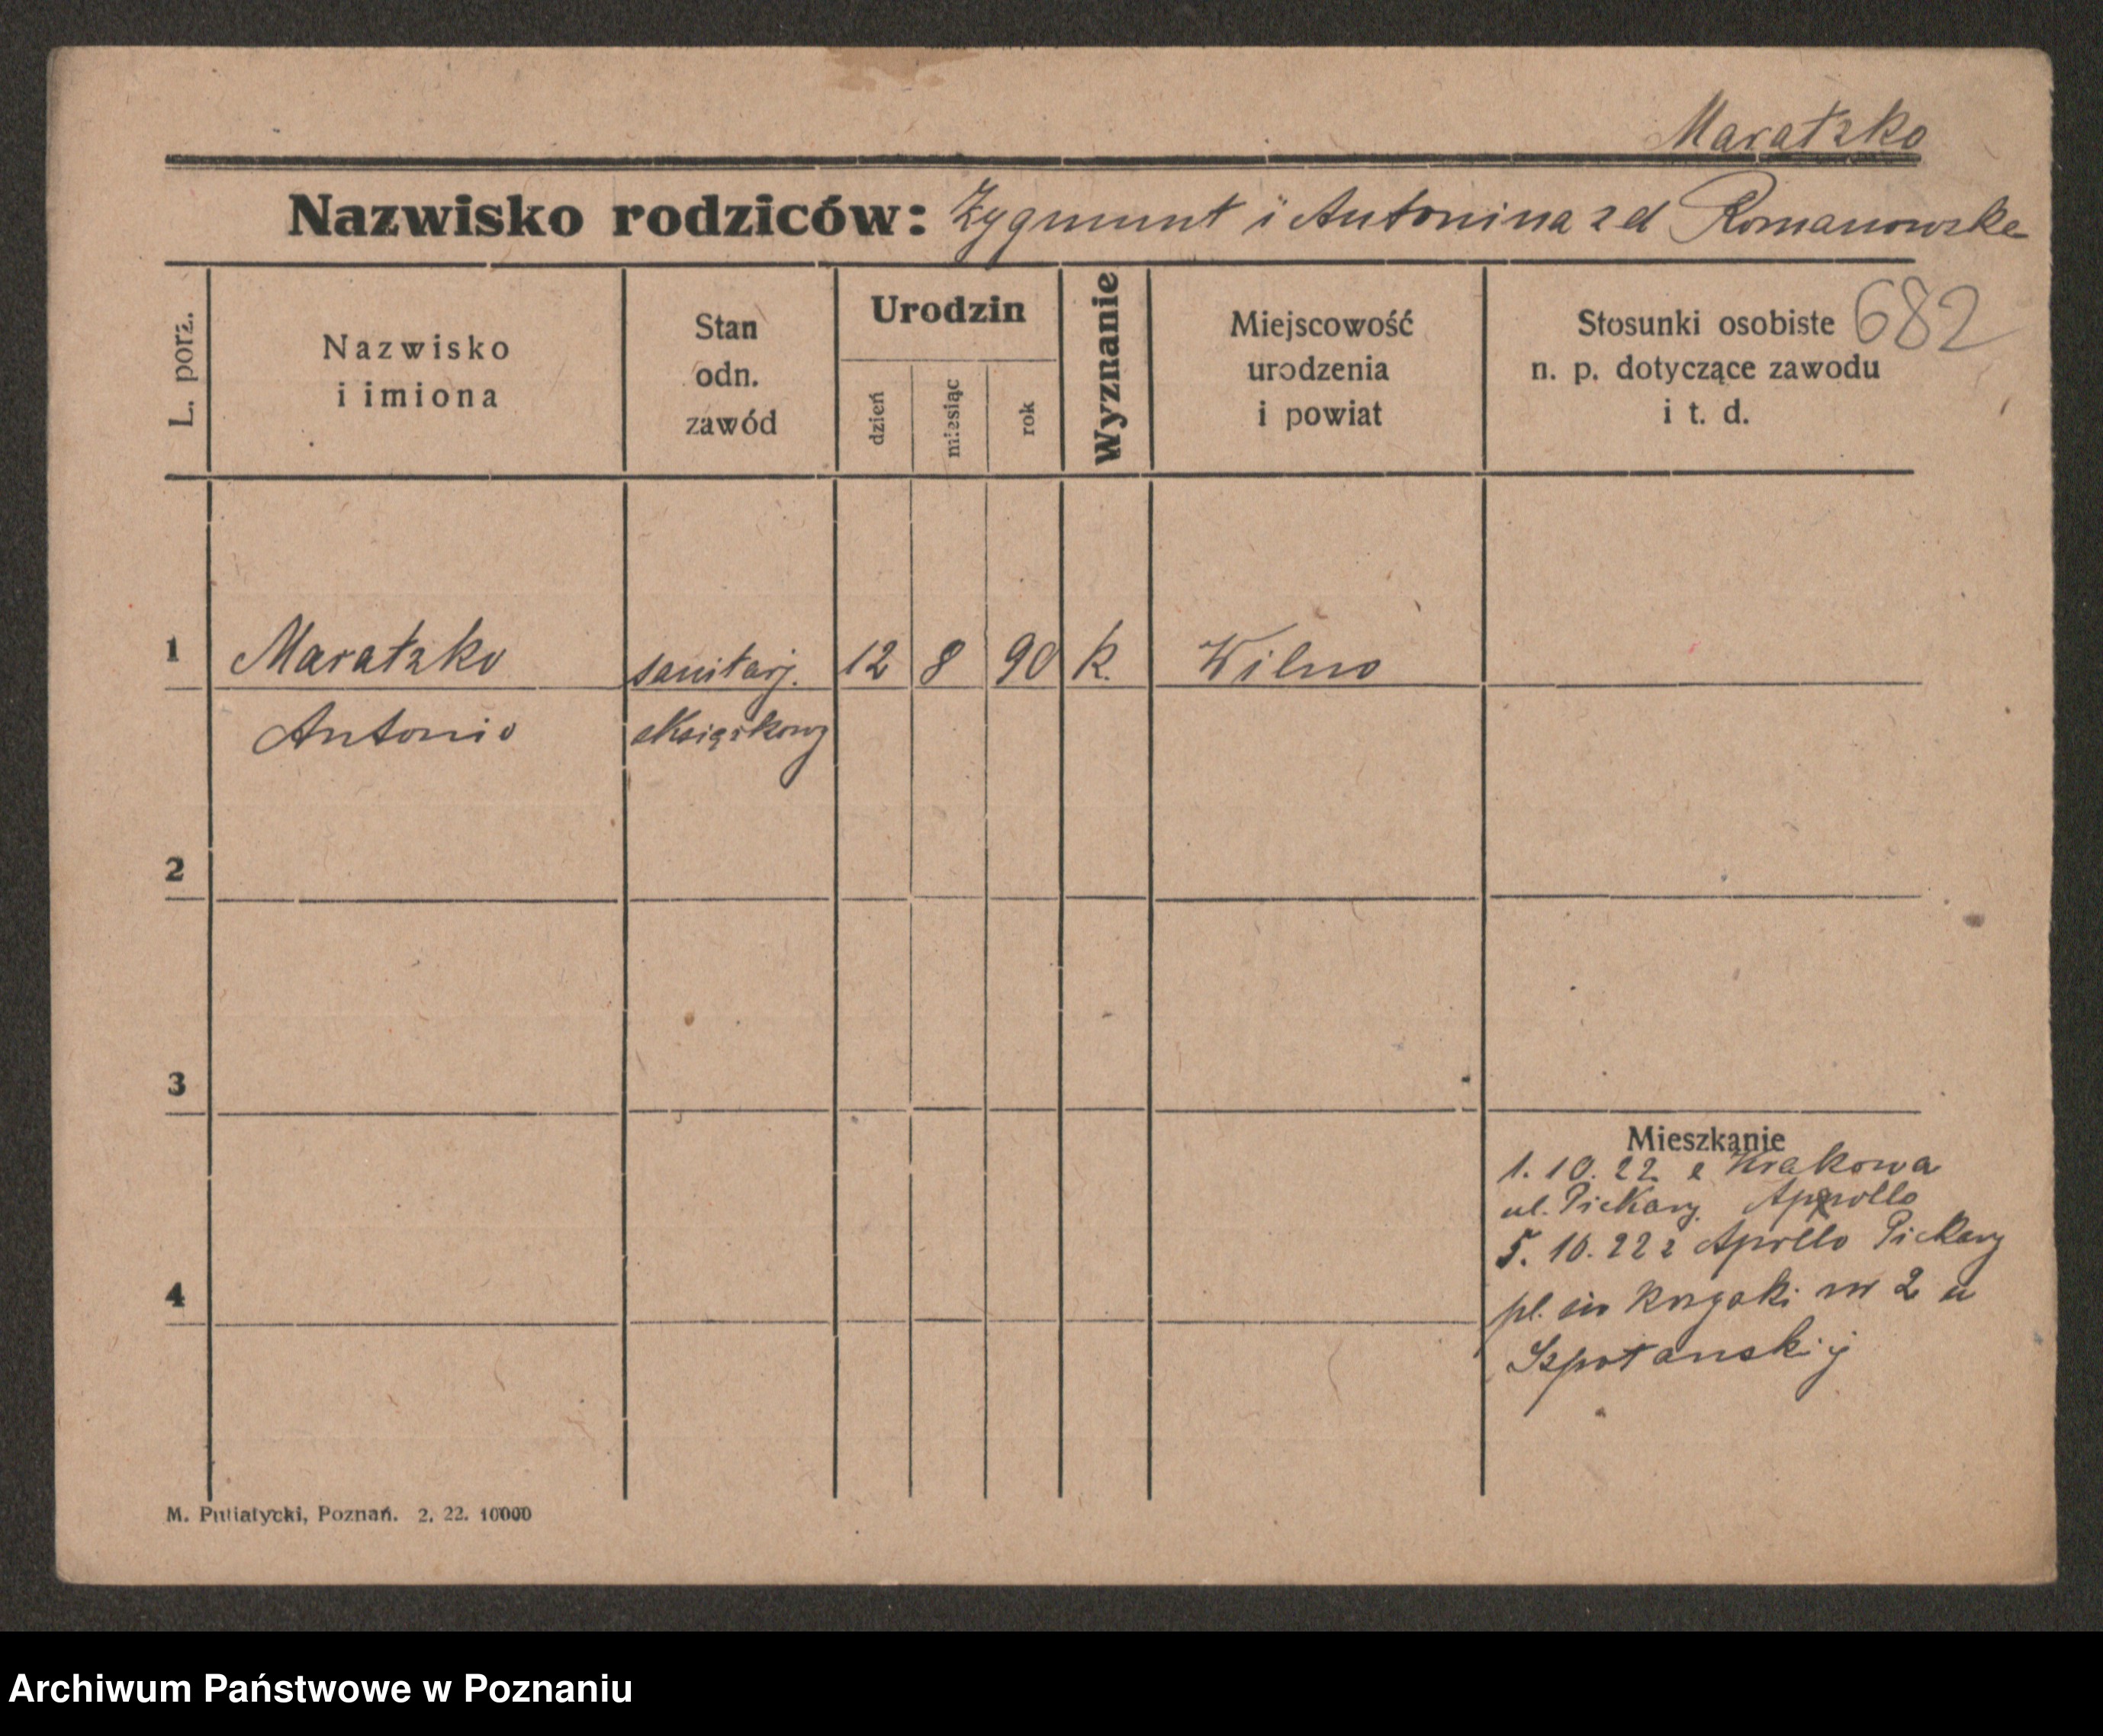 Maratzko
Nazwisko rodziców: Zygmunt i Antonina z d Romanowska
L. porz.
Nazwisko
i imiona
Stan
odn.
zawód
Urodzin
dzień
miesiąc
rok
Wyznanie
Miejscowość
urodzenia
i powiat
Stosunki osobiste
n. p. dotyczące zawodu
i t. d.
682
1 Maratzko sanitarj. 12 8 90 k. Wilno
Antonio
2
3
4
Mieszkanie
1. 10. 22 z Krakowa
ul. Piekary. Apollo
5. 10. 22 z Apollo Piekary
pl. nr 2 u
M. Putiatycki, Poznań. 2. 22. 10000
Archiwum Państwowe w Poznaniu